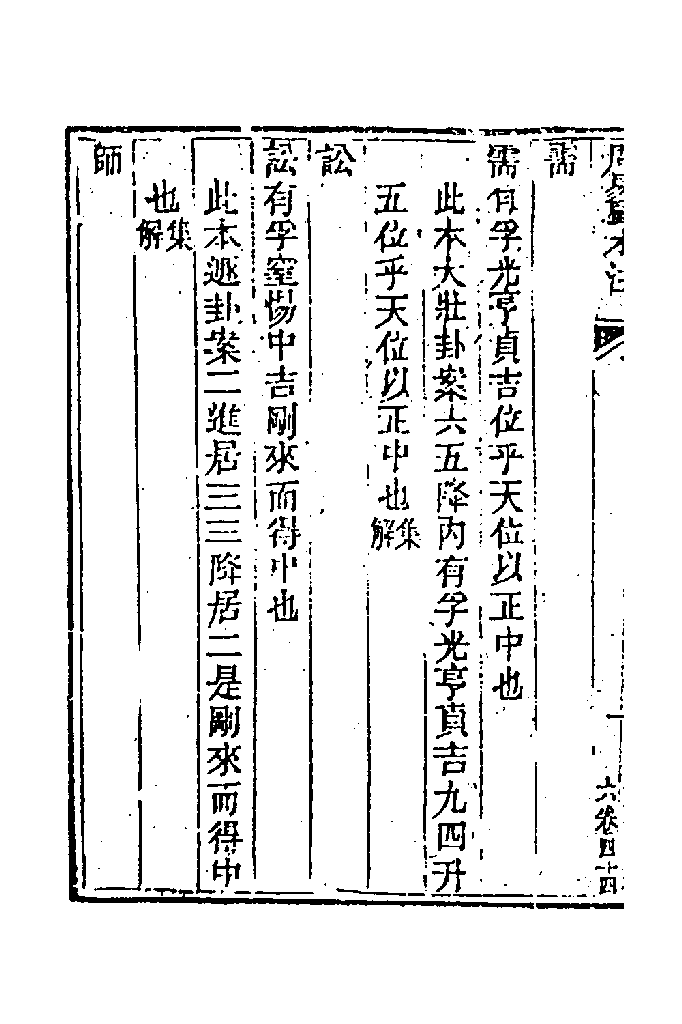 需
需有孚光亨貞吉位乎天位以正中也
此本大壯卦案六五降內有孚光亨貞吉九四升
五位乎天位以正中也集解
訟
訟有孚窒惕中吉剛來而得中也
此本遯卦案二進居三三降居二是剛來而得中
也集解
師
六卷四十四